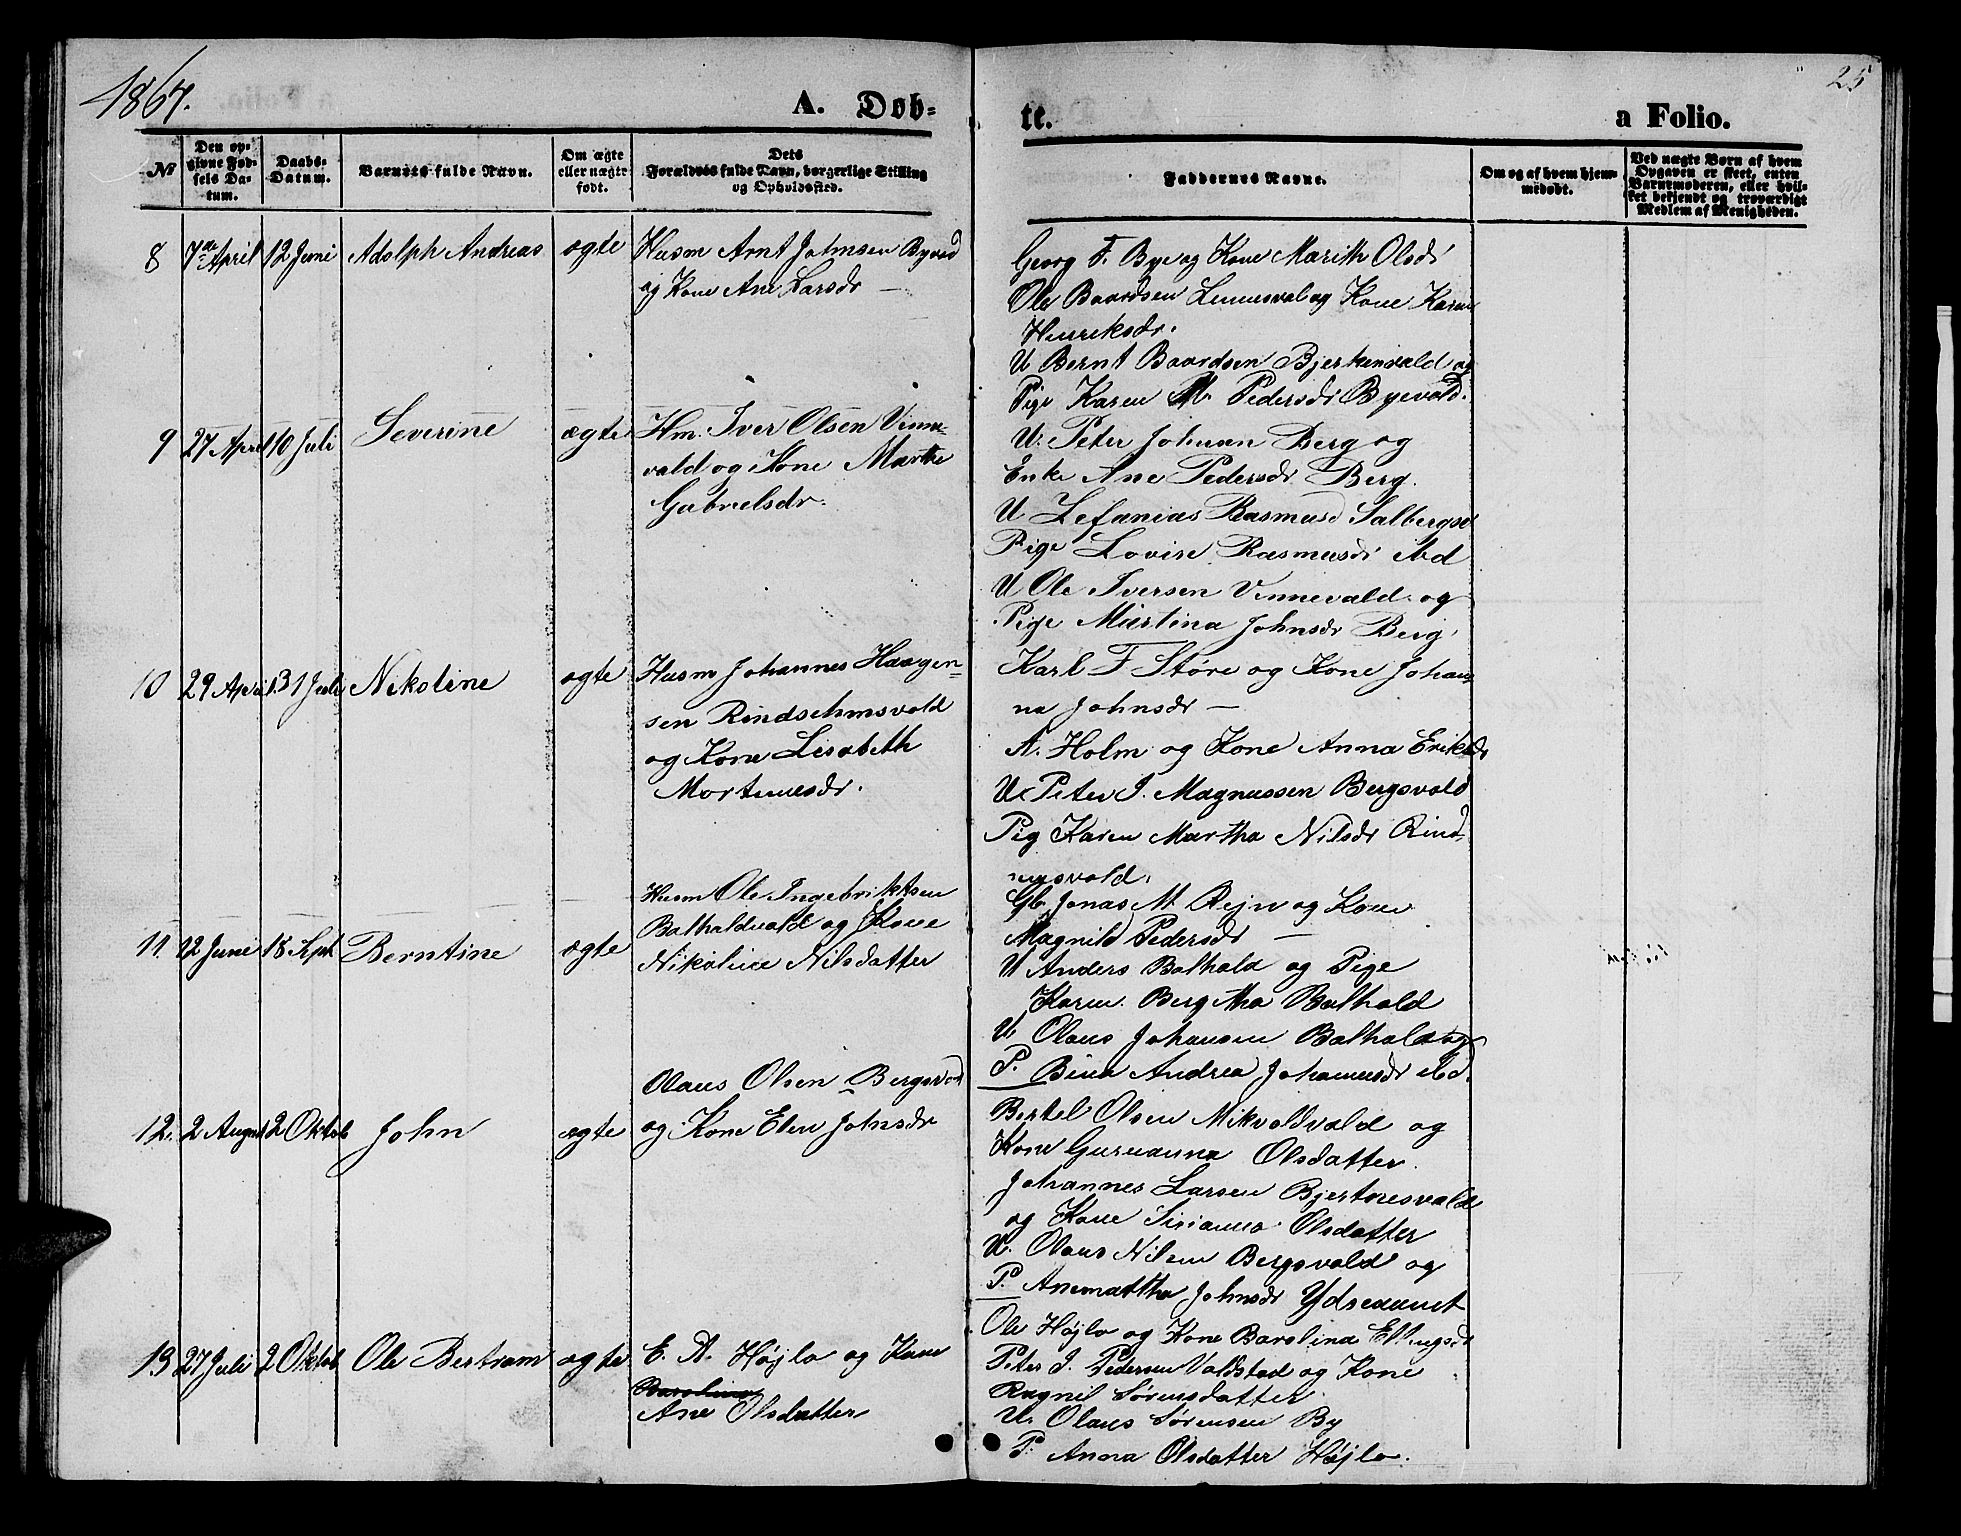 1867.
25
A. Døb-
te.
a Folio.
№
Den op-
givne Fød-
sels Da-
tum.
Daabs-
Datum.
Barnets fulde Navn.
Om ægte
eller uægte
født.
Dets
Forældres fulde Navn, borgerlige Stilling
og Opholdssted.
Faddernes Navne.
Om og af hvem hjem-
medøbt.
Ved uægte Børn af hvem
Opgaven er skeet, enten
Barnemoderen, eller hvil-
ket bekjendt og troværdigt
Medlem af Menigheden.
8 7de April 12 Juni Adolph Andreas ægte
Husm Arnt Johnsen Byvd
og Kone Ane Larsdr —
Georg F. Bye og Kone Marith Olsdr
Ole Baardsen og Kone Karen
Henriksdr.
U Bernt Baardsen Bjerkenvald og
Pige Karen M. Pedersdr Byevald.
9 27 April 10 Juli Severine ægte
Hm. Iver Olsen Vinne-
vald og Kone Marthe
Gabrielsdr.
U. Peter Johnsen Berg og
Enke Ane Pedersdr Berg.
U Zefanias Rasmusd Salbergsv
Pige Lovise Rasmusdr ibd
U Ole Iversen Vinnevald og
Pige Martina Johnsdr Berg.
10 29 April 31 Juli Nikoline ægte
Husm Johannes Haagen-
sen Rindsehmsvald
og Kone Lisabeth
Mortinusdr.
Karl F Støre og Kone Johan-
na Johnsdr —
A. Holm og Kone Anna Eriksdr
U. Peter J. Magnussen Bergsvald
Pig Karen Martha Nilsdr Rind-
umsvald.
11. 12 Juni 18 Sept Berntine ægte
Husm Ole Ingebriktsen
Balhaldvald og Kone
Nikoline Nilsdatter
Gb. Jonas M Rejn og Kone
Magnild Pedersdr —
U Anders Balhald og Pige
Karen Bergitha Balhald
U Olaus Johansen Balhald og
P. Bina Andrea Johannesdr ibd.
12. 2 August 2 Oktob John ægte
Olaus Olsen Bergsvad
og Kone Elen Johnsdr
Bertel Olsen Mikvoldvald og
Kone Gurianna Olsdatter.
Johannes Larsen Bjertnesvald
og Kone Sirianna Olsdatter
U. Olaus Nilsen Bergsvald og
P. Anemartha Johnsdr Ydseaunet
13 27 Juli 2 Oktob Ole Bertram ægte
E. A. Højlo og Kone
Barolina
Ane Olsdatter
Ole Højlo og Kone Barolina Ellingsdt
Peter J. Pedersen Valdstad og Kone
Ragnil Sørensdatter
U. Olaus Sørensen By
P. Anna Olsdatter Højlo.